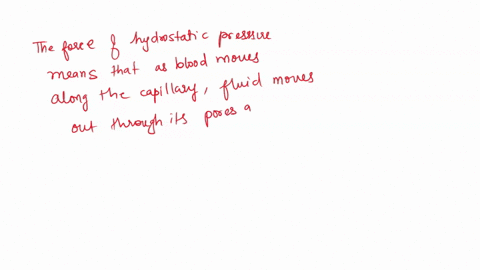 The force of hydrostatic pressure
means that as blood moves
along the capillary, fluid moves
out through its pores a